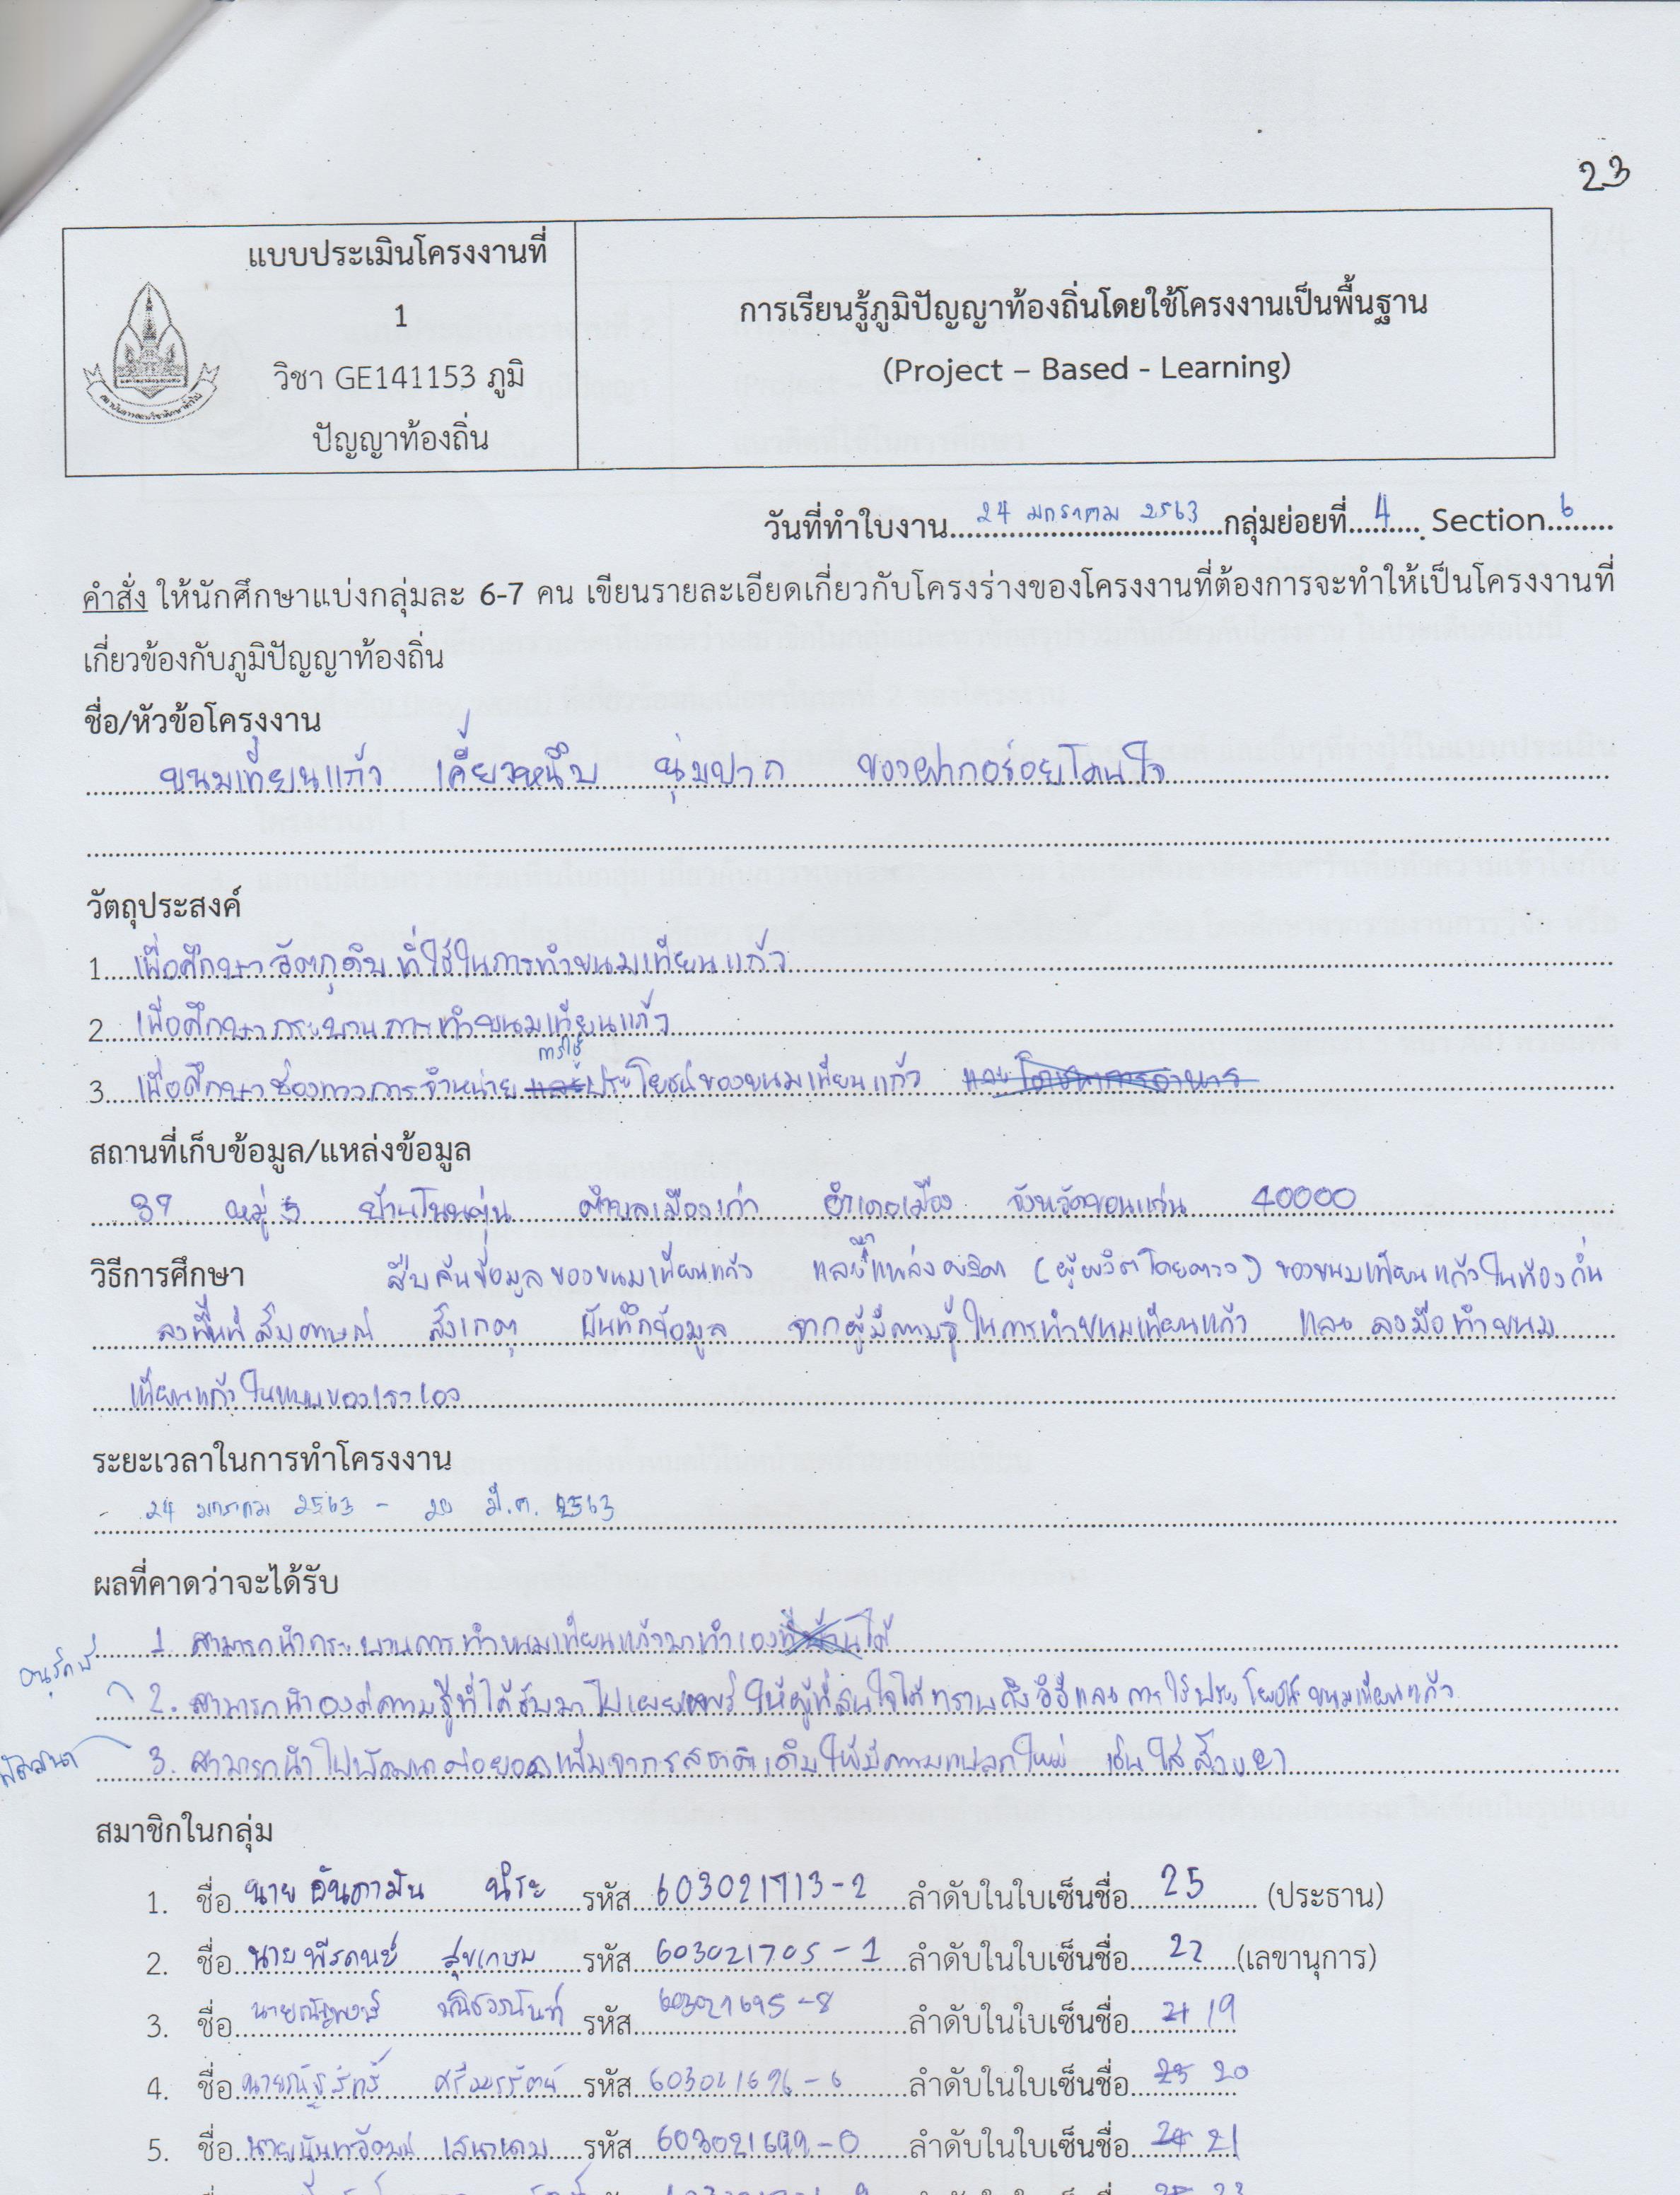 23
แบบประเมินโครงงานที่
1
วิชา GE141153 ภูมิ
ปัญญาท้องถิ่น
การเรียนรู้ภูมิปัญญาท้องถิ่นโดยใช้โครงงานเป็นพื้นฐาน
(Project – Based - Learning)
วันที่ทำใบงาน 24 มกราคม 2563 กลุ่มย่อยที่ 4 Section 6
คำสั่ง ให้นักศึกษาแบ่งกลุ่มละ 6-7 คน เขียนรายละเอียดเกี่ยวกับโครงร่างของโครงงานที่ต้องการจะทำให้เป็นโครงงานที่
เกี่ยวข้องกับภูมิปัญญาท้องถิ่น
ชื่อ/หัวข้อโครงงาน
ขนมเทียนแก้ว เคี้ยวหนึบ นุ่มปาก ของฝากอร่อยโดนใจ
วัตถุประสงค์
1. เพื่อศึกษาวัตถุดิบที่ใช้ในการทำขนมเทียนแก้ว
2. เพื่อศึกษากระบวนการทำขนมเทียนแก้ว
3. เพื่อศึกษาช่องทางการจำหน่าย การใช้ประโยชน์ของขนมเทียนแก้ว
สถานที่เก็บข้อมูล/แหล่งข้อมูล
หมู่ 5 บ้านโนนตุ่น ตำบลเมืองเก่า อำเภอเมือง จังหวัดขอนแก่น 40000
วิธีการศึกษา สืบค้นข้อมูลของขนมเทียนแก้ว และแหล่งผลิต (ผู้ผลิตโดยตรง) ของขนมเทียนแก้วในท้องถิ่น
ลงพื้นที่สัมภาษณ์ สังเกต บันทึกข้อมูล จากผู้มีความรู้ในการทำขนมเทียนแก้ว และ ลงมือทำขนม
เทียนแก้วในแบบของเราเอง
ระยะเวลาในการทำโครงงาน
- 24 มกราคม 2563 - 20 มี.ค. 2563
ผลที่คาดว่าจะได้รับ
1. สามารถนำกระบวนการทำขนมเทียนแก้วมาทำเองได้
อนุรักษ์
2. สามารถนำองค์ความรู้ที่ได้รับมาไปเผยแพร่ให้ผู้ที่สนใจได้ทราบถึงวิธีและการใช้ประโยชน์ขนมเทียนแก้ว
พัฒนา
3. สามารถนำไปพัฒนาต่อยอดเพิ่มจากรสชาติเดิมให้มีความแปลกใหม่ เช่น ใส่สังขยา
สมาชิกในกลุ่ม
1. ชื่อ นาย อันดามัน รหัส 603021713-2 ลำดับในใบเซ็นชื่อ 25 (ประธาน)
2. ชื่อ นายพีรดนย์ สุขเกษม รหัส 603021705-1 ลำดับในใบเซ็นชื่อ 22 (เลขานุการ)
3. ชื่อ รหัส 603021695-8 ลำดับในใบเซ็นชื่อ 19
4. ชื่อ รหัส 603021696-6 ลำดับในใบเซ็นชื่อ 20
5. ชื่อ รหัส 603021699-0 ลำดับในใบเซ็นชื่อ 21